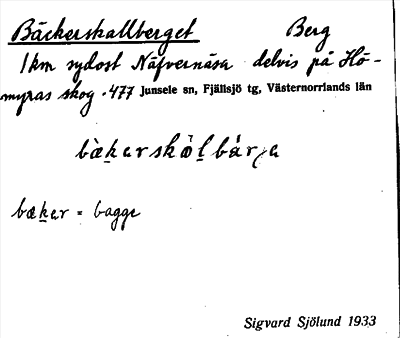 Bäckerskallberget Berg
1 km sydost Näfvernäsa delvis på Hö-
myras skog. 477 Junsele sn, Fjällsjö tg, Västernorrlands län
bæḵarskål̲bárja
bæḵar = bagge
Sigvard Sjölund 1933